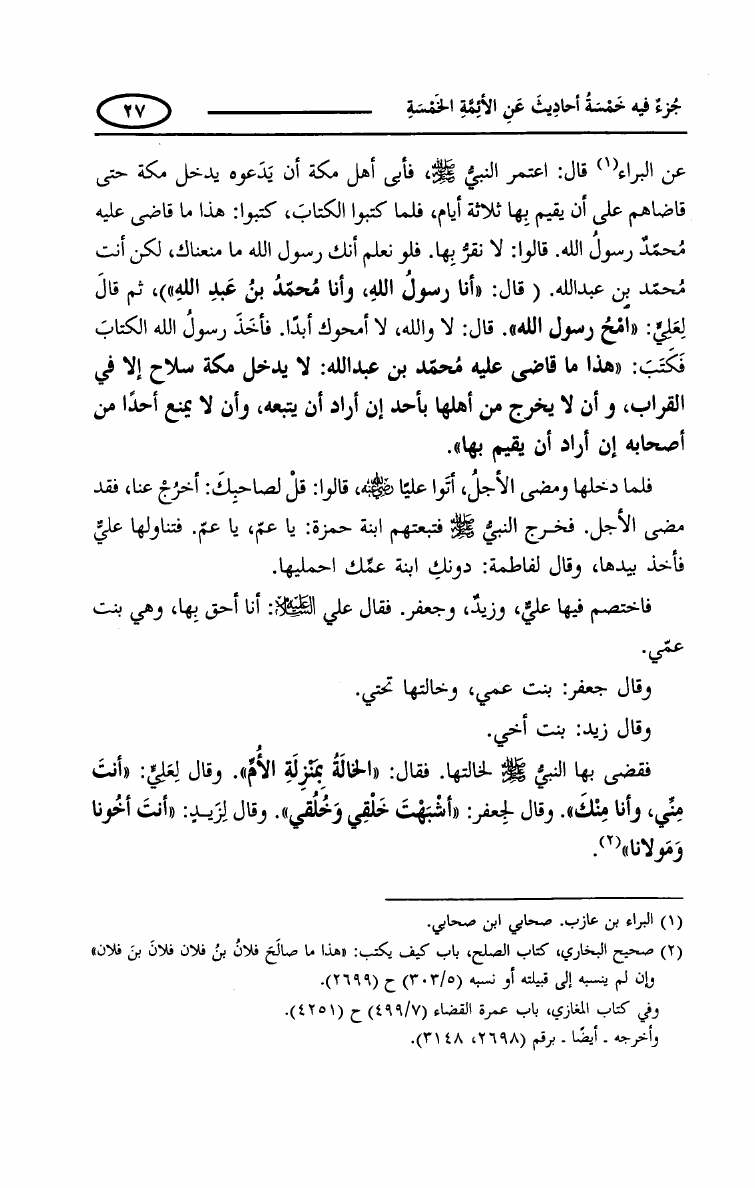 جُزءٌ فيه خَمْسَةُ أحادِيثَ عَنِ الأَئِمَّةِ الخَمْسَةِ
٢٧
عن البراء(١) قال: اعتمر النبيُّ ﷺ، فأبى أهل مكة أن يَدَعوه يدخل مكة حتى
قاضاهم على أن يقيم بِها ثلاثة أيام، فلما كتبوا الكتابَ، كتبوا: هذا ما قاضى عليه
مُحمّدٌ رسولُ الله. قالوا: لا نقرُّ بِها. فلو نعلم أنك رسول الله ما منعناك، لكن أنت
مُحمّد بن عبدالله. ( قال: «أنا رسولُ اللهِ، وأنا مُحمّدُ بنُ عَبدِ اللهِ»)، ثم قالَ
لِعَلِيٍّ: «امْحُ رسول الله». قال: لا والله، لا أمحوك أبدًا. فأخَذَ رسولُ الله الكتابَ
فَكَتَبَ: «هذا ما قاضى عليه مُحمّد بن عبدالله: لا يدخل مكة سلاح إلا في
القراب، و أن لا يخرج من أهلها بأحد إن أراد أن يتبعه، وأن لا يمنع أحدًا من
أصحابه إن أراد أن يقيم بها».
فلما دخلها ومضى الأجلُ، أتَوا عليًا رضي الله عنه، قالوا: قلْ لصاحبِكَ: أخرُجْ عنا، فقد
مضى الأجل. فخرج النبيُّ ﷺ فتبعتهم ابنة حمزة: يا عمّ، يا عمّ. فتناولها عليٌّ
فأخذ بيدها، وقال لفاطمة: دونكِ ابنة عمِّك احمليها.
فاختصم فيها عليٌّ، وزيدٌ، وجعفر. فقال علي عليه السلام: أنا أحق بِها، وهي بنت
عمّي.
وقال جعفر: بنت عمي، وخالتها تحتي.
وقال زيد: بنت أخي.
فقضى بها النبيُّ ﷺ لخالتها. فقال: «الخالَةُ بِمَنْزِلَةِ الأُمِّ». وقال لِعَلِيٍّ: «أنتَ
مِنِّي، وأنا مِنْكَ». وقال لجعفر: «أشْبَهْتَ خَلْقِي وَخُلُقي». وقال لِزَيدٍ: «أنتَ أخُونا
وَمَولانا»(٢).
(١) البراء بن عازب. صحابي ابن صحابي.
(٢) صحيح البخاري، كتاب الصلح، باب كيف يكتب: «هذا ما صالَحَ فلانُ بنُ فلان فلانَ بنَ فلان»
وإن لم ينسبه إلى قبيلته أو نسبه (٣٠٣/٥) ح (٢٦٩٩).
وفي كتاب المغازي، باب عمرة القضاء (٤٩٩/٧) ح (٤٢٥١).
وأخرجه - أيضًا - برقم (٢٦٩٨، ٣١٤٨).